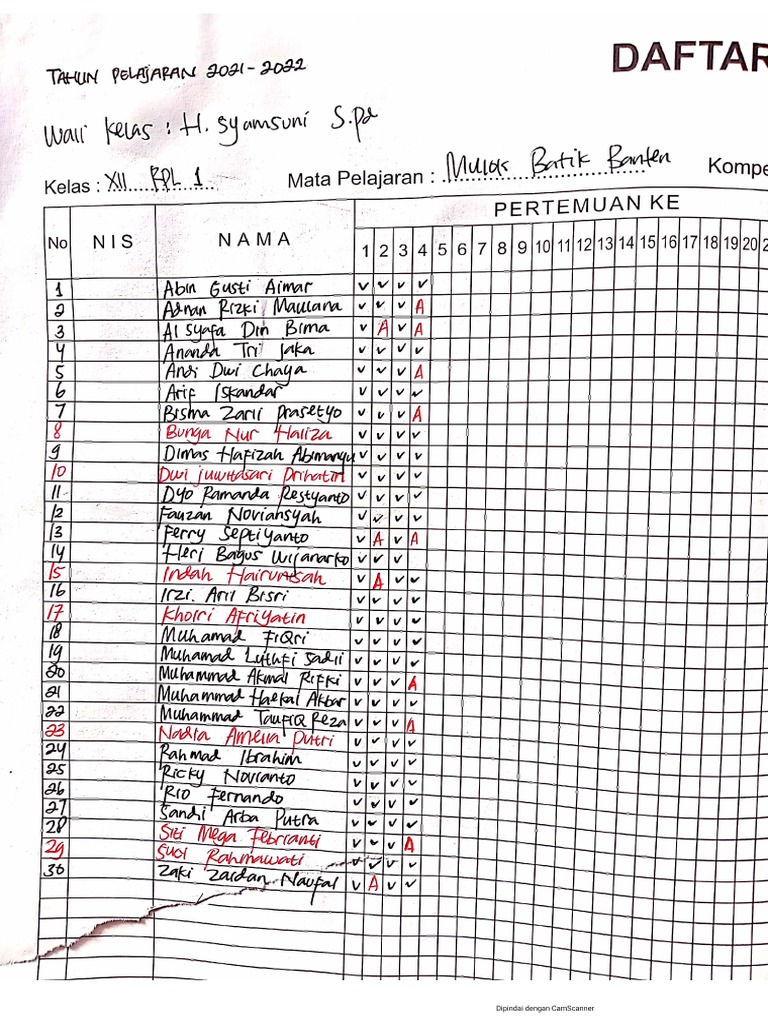 DAFTAR
TAHUN PELAJARAN 2021-2022
Wali Kelas : H. Syamsuni S.pd
Kelas : XII RPL 1 Mata Pelajaran : Mulok Batik Banten Kompe
No NIS NAMA PERTEMUAN KE
1 2 3 4 5 6 7 8 9 10 11 12 13 14 15 16 17 18 19 20 2
1 Abin Gusti Aimar v v v v
2 Adnan Rizki Maulana v v v A
3 Al Syafa Din Bima v A v A
4 Ananda Tri jaka v v v v
5 Andi Dwi Chaya v v v A
6 Arif Iskandar v v v v
7 Bisma Zarli Prasetyo v v v A
8 Bunga Nur Haliza v v v v
9 Dimas Hafizah Abimanyu v v v v
10 Dwi juwitasari Prihatin v v v v
11 Dyo Ramanda Restyanto v v v v
12 Fauzan Noviansyah v v v v
13 Ferry Septiyanto v A v A
14 Heri Bagus Wijanarko v v v
15 Indah Hairunisah v A v v
16 Irzi Aril Bisri v v v v
17 Khoiri Afriyatin v v v v
18 Muhamad Fiqri v v v v
19 Muhamad Luthfi Sadli v v v v
20 Muhammad Akmal Rifki v v v A
21 Muhammad Haekal Akbar v v v v
22 Muhammad Taufiq Reza v v v A
23 Nadia Amelia Putri v v v v
24 Rahmad Ibrahim v v v v
25 Ricky Novianto v v v v
26 Rio Fernando v v v v
27 Sandi Arba Putra v v v v
28 Siti Mega Febrianti v v v A
29 Suci Rahmawati v v v v
30 Zaki Zaidan Naufal v A v v
Dipindai dengan CamScanner